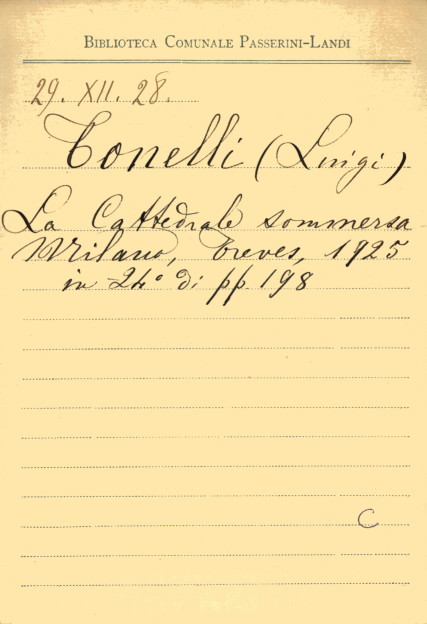 Biblioteca Comunale Passerini-Landi
29. XII. 28.
Tonelli (Luigi)
La Cattedrale sommersa
Milano, Treves, 1925
in 24° di pp. 198
C